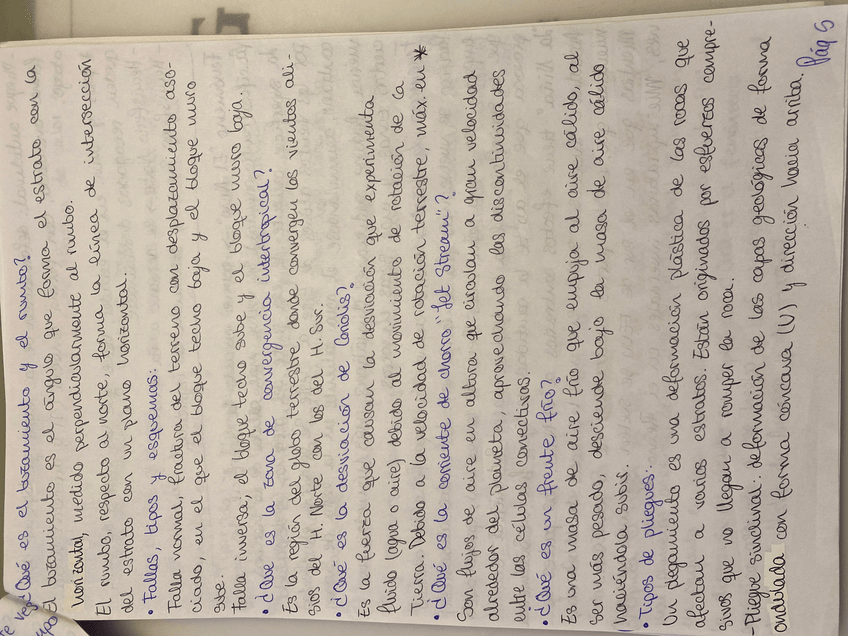 ¿Qué es el buzamiento y el rumbo?
El buzamiento es el ángulo que forma el estrato con la
horizontal, medido perpendicularmente al rumbo.
El rumbo, respecto al norte, forma la línea de intersección
del estrato con un plano horizontal.
• Fallas, tipos y esquemas:
Falla normal, fractura del terreno con desplazamiento aso-
ciado, en el que el bloque techo baja y el bloque muro
sube.
Falla inversa, el bloque techo sube y el bloque muro baja.
• ¿Qué es la zona de convergencia intertropical?
Es la región del globo terrestre donde convergen los vientos ali-
sios del H. Norte con los del H. Sur.
• ¿Qué es la desviación de Coriolis?
Es la fuerza que causan la desviación que experimenta
fluido (agua o aire) debido al movimiento de rotación de la
Tierra. Debido a la velocidad de rotación terrestre, máx. en *
• ¿Qué es la corriente de chorro "Jet Stream"?
Son flujos de aire en altura que circulan a gran velocidad
alrededor del planeta, aprovechando las discontinuidades
entre las células convectivas.
• ¿Qué es un frente frío?
Es una masa de aire frío que empuja al aire cálido, al
ser más pesado, desciende bajo la masa de aire cálido
haciéndola subir.
• Tipos de pliegues:
Un plegamiento es una deformación plástica de las rocas que
afectan a varios estratos. Están originados por esfuerzos compre-
sivos que no llegan a romper la roca.
- Pliegue sinclinal: deformación de las capas geológicas de forma
ondulada con forma cóncava (U) y dirección hacia arriba.
Pág 5